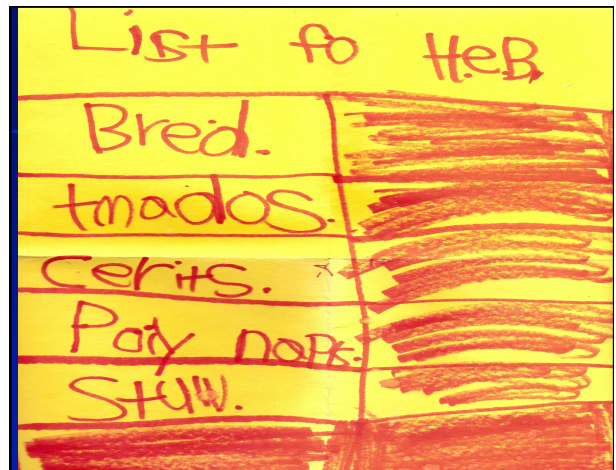 List fo H.e.B,
Bred.
tmados.
cerits.
Paiy naps.
Stuw.